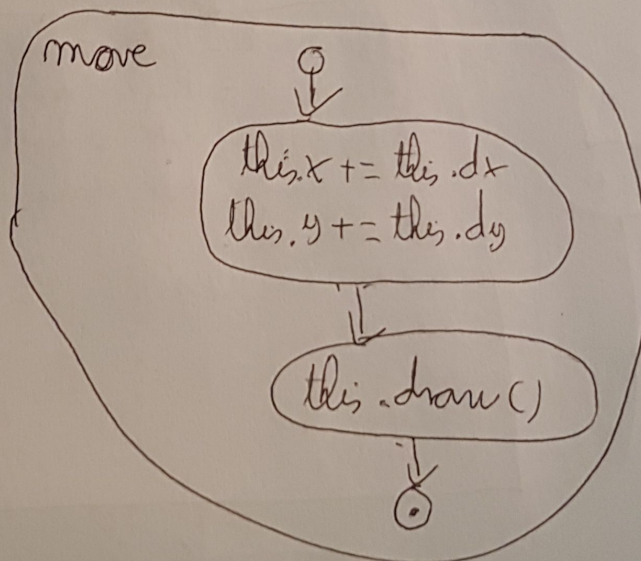 move
this.x += this.dx
this.y += this.dy
this.draw()